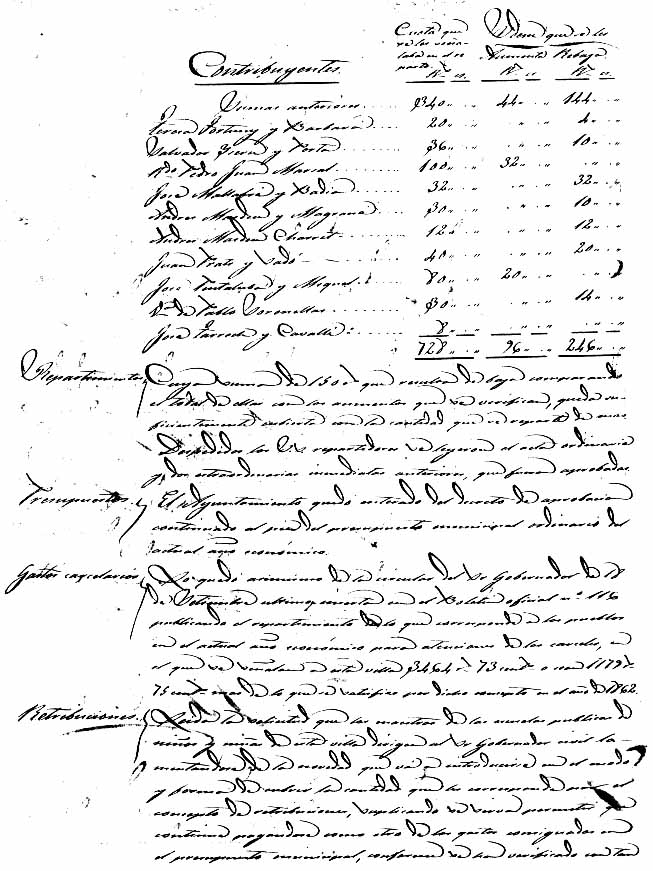 Contribuyentes.
Cuota que
se les seña-
laba en el re
parto.
Rs. cs.
Idem que se les
Aumenta Rebaja
Rs. cs. Rs. cs.
Sumas anteriores 340 " 44 " 144 "
Teresa Fortuny y Barbará 20 " " " 4 "
Salvador y Porta 36 " " " 10 "
Rdo. Pedro Juan Marsal 100 " 32 " " "
José Mallafré y Badia 32 " " " 32 "
Andres y Magrané 30 " " " 10 "
Andres 12 " " " 12 "
Juan Prats y 40 " " " 20 "
José Fontaluba y Miquel 80 " 20 " " "
Va. de Pablo 30 " " " 14 "
José y Cavallé 8 " " " " "
728 " 96 " 246 "
Repartimiento Cuya suma de 150 rs. que resulta de baja comparando
el total de ellas con los aumentos que se verifican, queda su-
ficientemente cubierta con la cantidad que se repartió de mas.
Despedidos los Sres. repartidores se leyeron el acta ordinaria
y dos extraordinarias inmediatas anteriores, que fueron aprobadas.
Presupuestos. El Ayuntamiento quedó enterado del decreto de aprobacion
continuado al pie del presupuesto municipal ordinario del
actual año económico.
Gastos carcelarios Lo quedó asimismo de la circular del Sr. Gobernador de 18
de Setiembre último inserta en el Boletin oficial nº. 116
publicando el repartimiento de lo que corresponde á los pueblos
en el actual año económico para atenciones de las carceles, en
el que se señalan á esta villa 3464 rs. 73 cents. ó sean 1179 rs.
75 cents. mas de lo que se satisfizo por dicho concepto en el año de 1862.
Retribuciones. Leida la solicitud que los maestros de las escuelas publicas de
niños y niñas de esta villa dirigen al Sr. Gobernador civil la-
mentandose de la novedad que vá á introducirse en el modo
y forma de cubrir la cantidad que les corresponde por el
concepto de retribuciones, suplicando se sirva permitir que
continue pagandose como otro de los gastos consignados en
el presupuesto municipal, conforme se ha verificado con tan